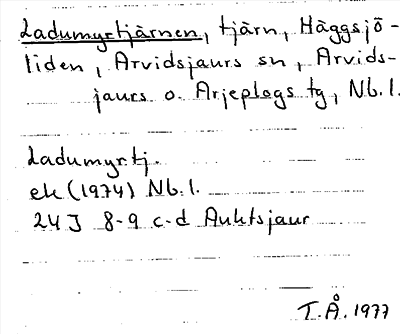 Ladumyrtjärnen, tjärn, Häggsjö-
liden, Arvidsjaurs sn, Arvids-
jaurs o. Arjeplogs tg, Nb. l.
Ladumyrtj.
ek (1974) Nb. l.
24J 8-9 c-d Auktsjaur
T.Å. 1977